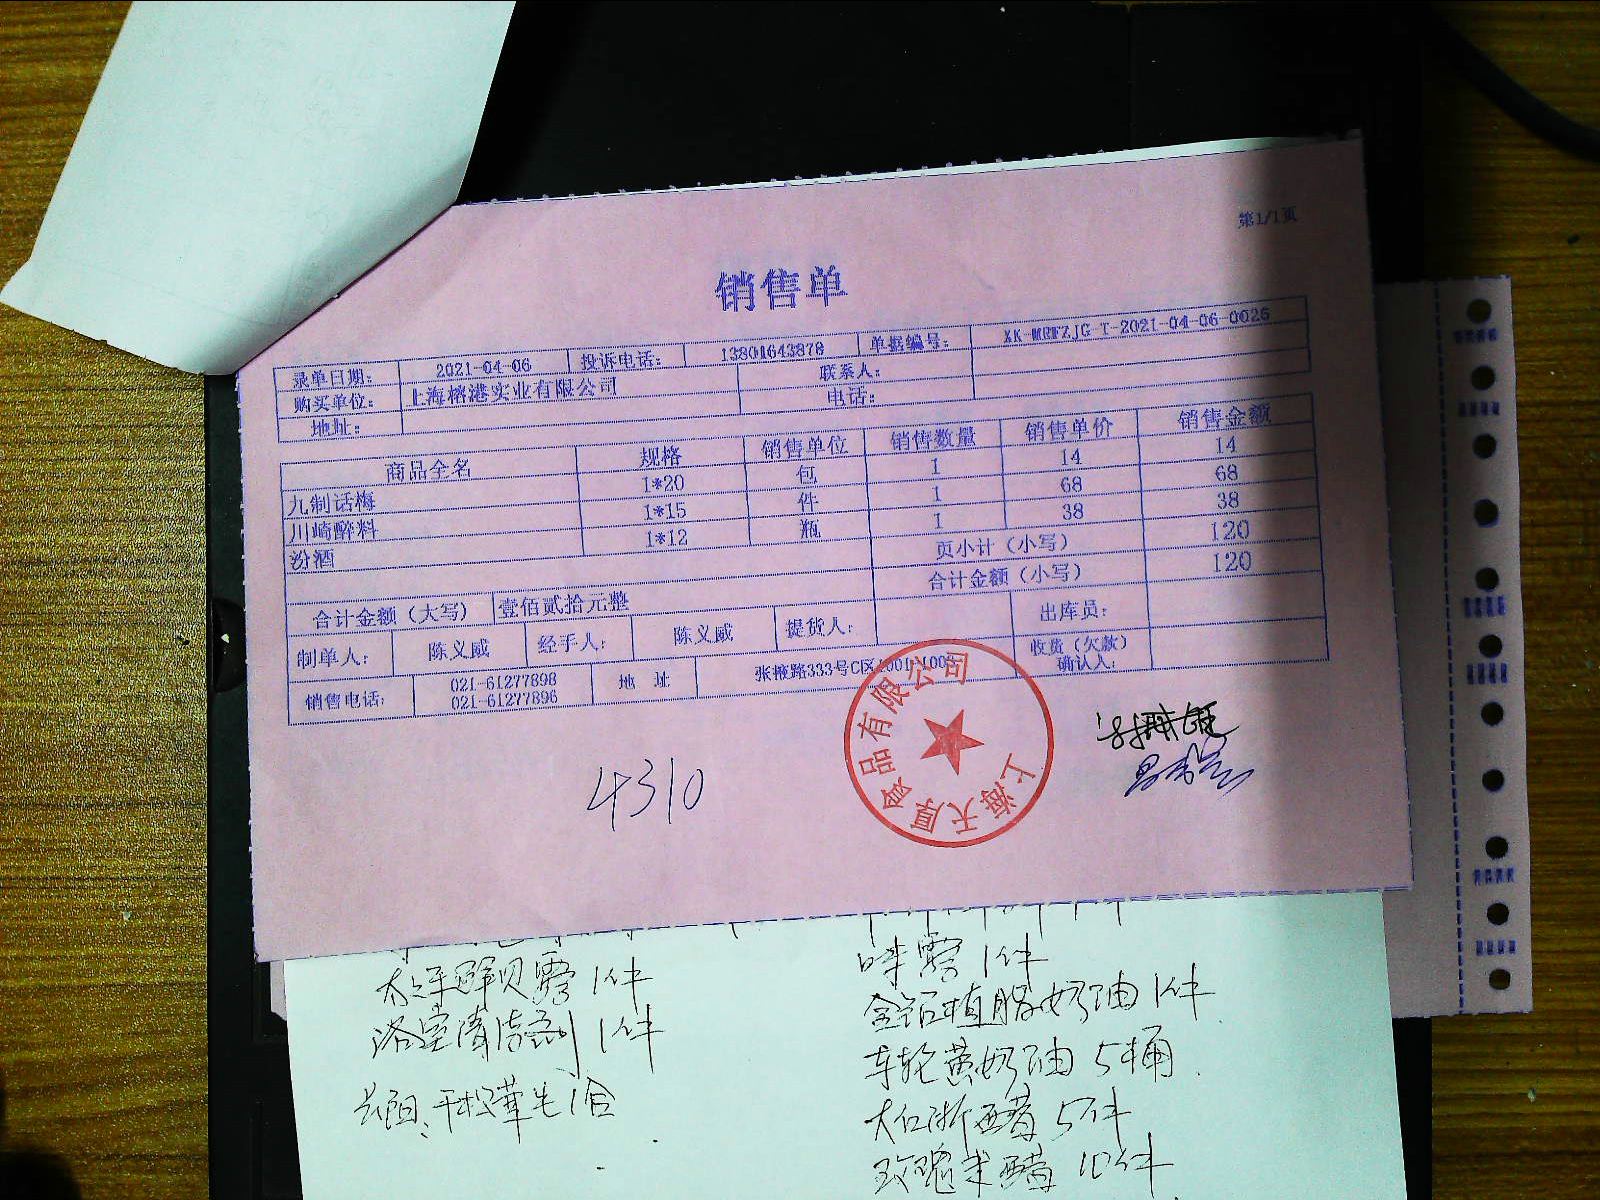 第1/1页
销售单
录单日期： 2021-04-06 投诉电话： 13801643878 单据编号： XK-MRFZJG-T-2021-04-06-0026
购买单位： 上海榕港实业有限公司 联系人：
地址： 电话：
商品全名 规格 销售单位 销售数量 销售单价 销售金额
九制话梅 1*20 包 1 14 14
川崎醉料 1*15 件 1 68 68
汾酒 1*12 瓶 1 38 38
页小计（小写） 120
合计金额（小写） 120
合计金额（大写） 壹佰贰拾元整
制单人： 陈义威 经手人： 陈义威 提货人： 出库员：
销售电话： 021-61277898 地 址 张掖路333号C区1001-100 收货（欠款）
021-61277896 确认人：
上海天厦食品有限公司
4310
1件 味露 1件
浴室清洁剂 1件 金钻植脂奶油 1件
车轮黄奶油 5桶
大红浙醋 5件
玫瑰米醋 10件